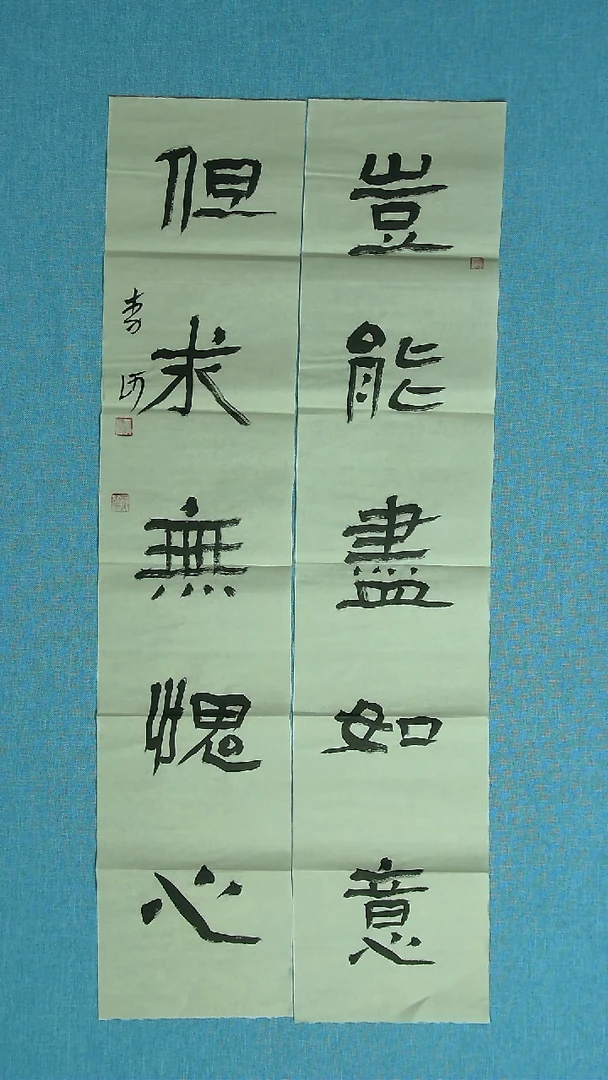 豈能盡如意
但求無愧心